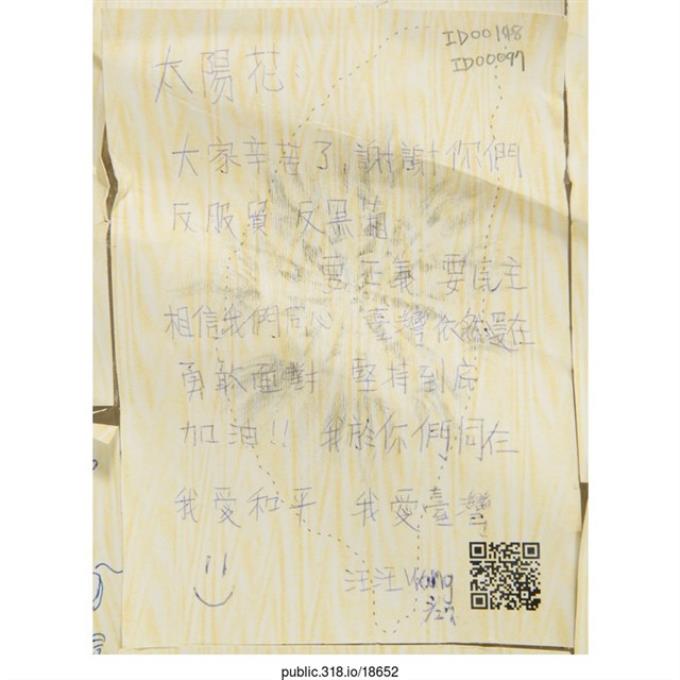 ID00148
ID00097
太陽花：
大家辛苦了，謝謝你們
反服貿 反黑箱
要正義 要民主
相信我們同心 臺灣依然還在
勇敢面對 堅持到底
加油!! 我於你們同在
我愛和平 我愛臺灣
汪汪
3/27
public.318.io/18652